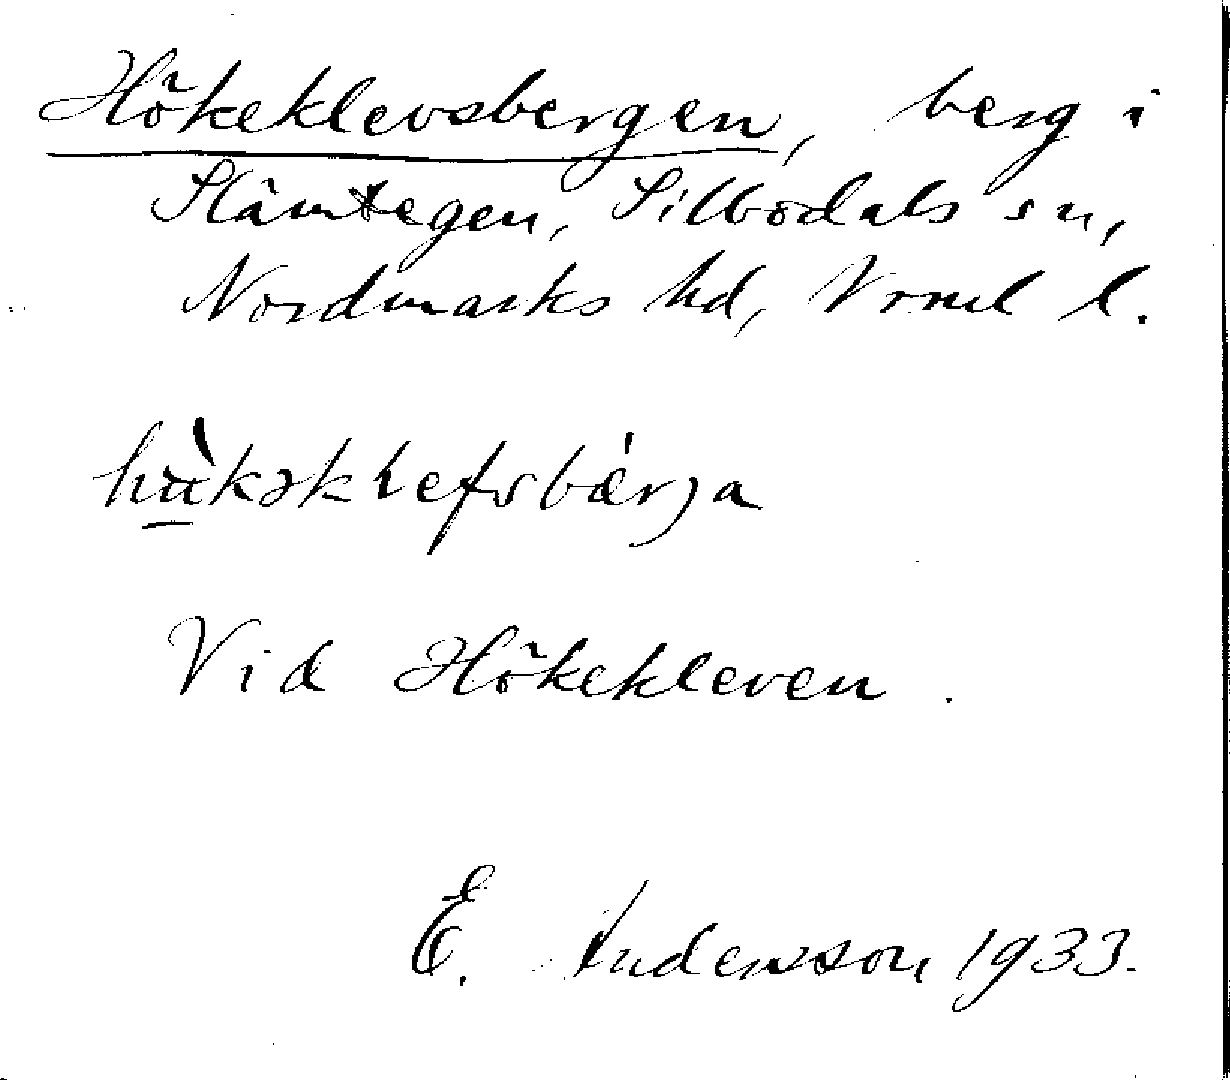 Hökeklevsbergen, berg i
Slämtegen, Silbodals sn,
Nordmarks hd, Vrml l.
hu̱̇̀kəklefsbǽrja
Vid Hökekleven.
E. Andersson 1933.